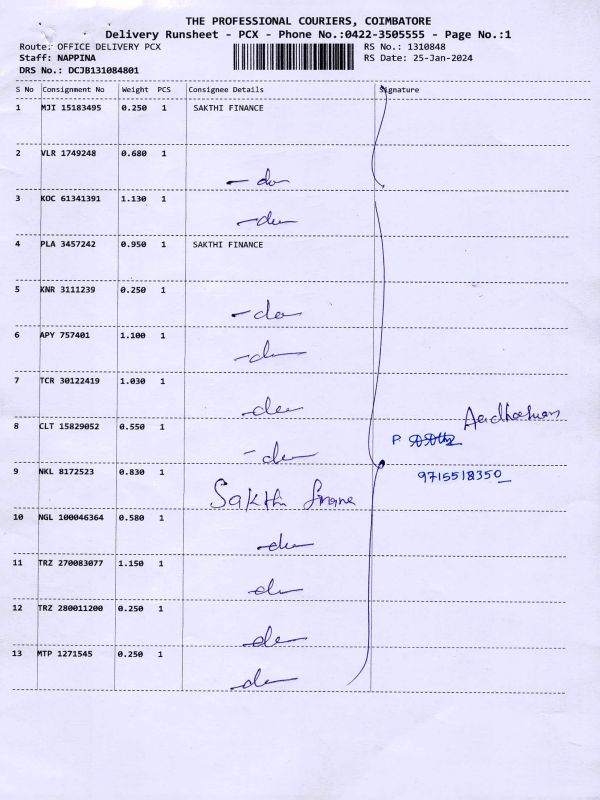 THE PROFESSIONAL COURIERS, COIMBATORE
Delivery Runsheet - PCX - Phone No.:0422-3505555 - Page No.:1
Route: OFFICE DELIVERY PCX RS No.: 1310848
Staff: NAPPINA RS Date: 25-Jan-2024
DRS No.: DCJB131084801
S No Consignment No Weight PCS Consignee Details Signature
1 MJI 15183495 0.250 1 SAKTHI FINANCE
2 VLR 1749248 0.680 1
- do
3 KOC 61341391 1.130 1
- do
4 PLA 3457242 0.950 1 SAKTHI FINANCE
5 KNR 3111239 0.250 1
- do
6 APY 757401 1.100 1
- do
7 TCR 30122419 1.030 1
- do
8 CLT 15829052 0.550 1
P
- do
9 NKL 8172523 0.830 1
9715518350
Sakthi finane
10 NGL 100046364 0.580 1
- do
11 TRZ 270083077 1.150 1
- do
12 TRZ 280011200 0.250 1
- do
13 MTP 1271545 0.250 1
- do